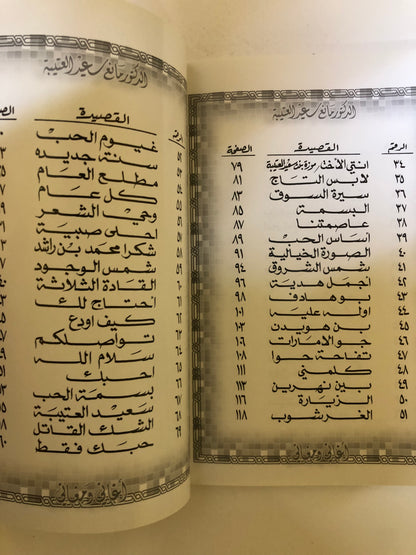 الدكتور مانع سعيد العتيبة
الرقم القصيدة الصفحة
٣٤ انتي الاخت موزة بنت سعيد العتيبة ٧٩
٣٥ لابس التاج ٨١
٣٦ سيرة السوق ٨٣
٣٧ البسمة ٨٥
٣٨ عاصمتنا ٨٧
٣٩ اساس الحب ٨٩
٤٠ الصورة الخيالية ٩١
٤١ شمس الشروق ٩٤
٤٢ اجمل هدية ٩٦
٤٣ بو هادف ٩٨
٤٤ اوله عليه ١٠١
٤٥ بن هويدن ١٠٤
٤٦ جو الامارات ١٠٦
٤٧ تفاحة حوا ١٠٨
٤٨ كلمني ١١١
٤٩ بين نهرين ١١٣
٥٠ الزيارة ١١٦
٥١ الغرشوب ١١٨
أغاني وأماني
الدكتور مانع سعيد العتيبة
الرقم القصيدة
٥٢ غيوم الحب
٥٣ سنة جديده
٥٤ مطلع العام
٥٥ كل عام
٥٦ وحي الشعر
٥٧ احلى صبية
٥٨ شكرا محمد بن راشد
٥٩ شمس الوجود
٦٠ القادة الثلاثة
٦١ احتاج لك
٦٢ كيف اودع
٦٣ تواصلكم
٦٤ سلام الله
٦٥ احبك
٦٦ بسمة الحب
٦٧ سعيد العتيبة
٦٨ الشك القاتل
٦٩ حبك فقط
أغاني وأماني